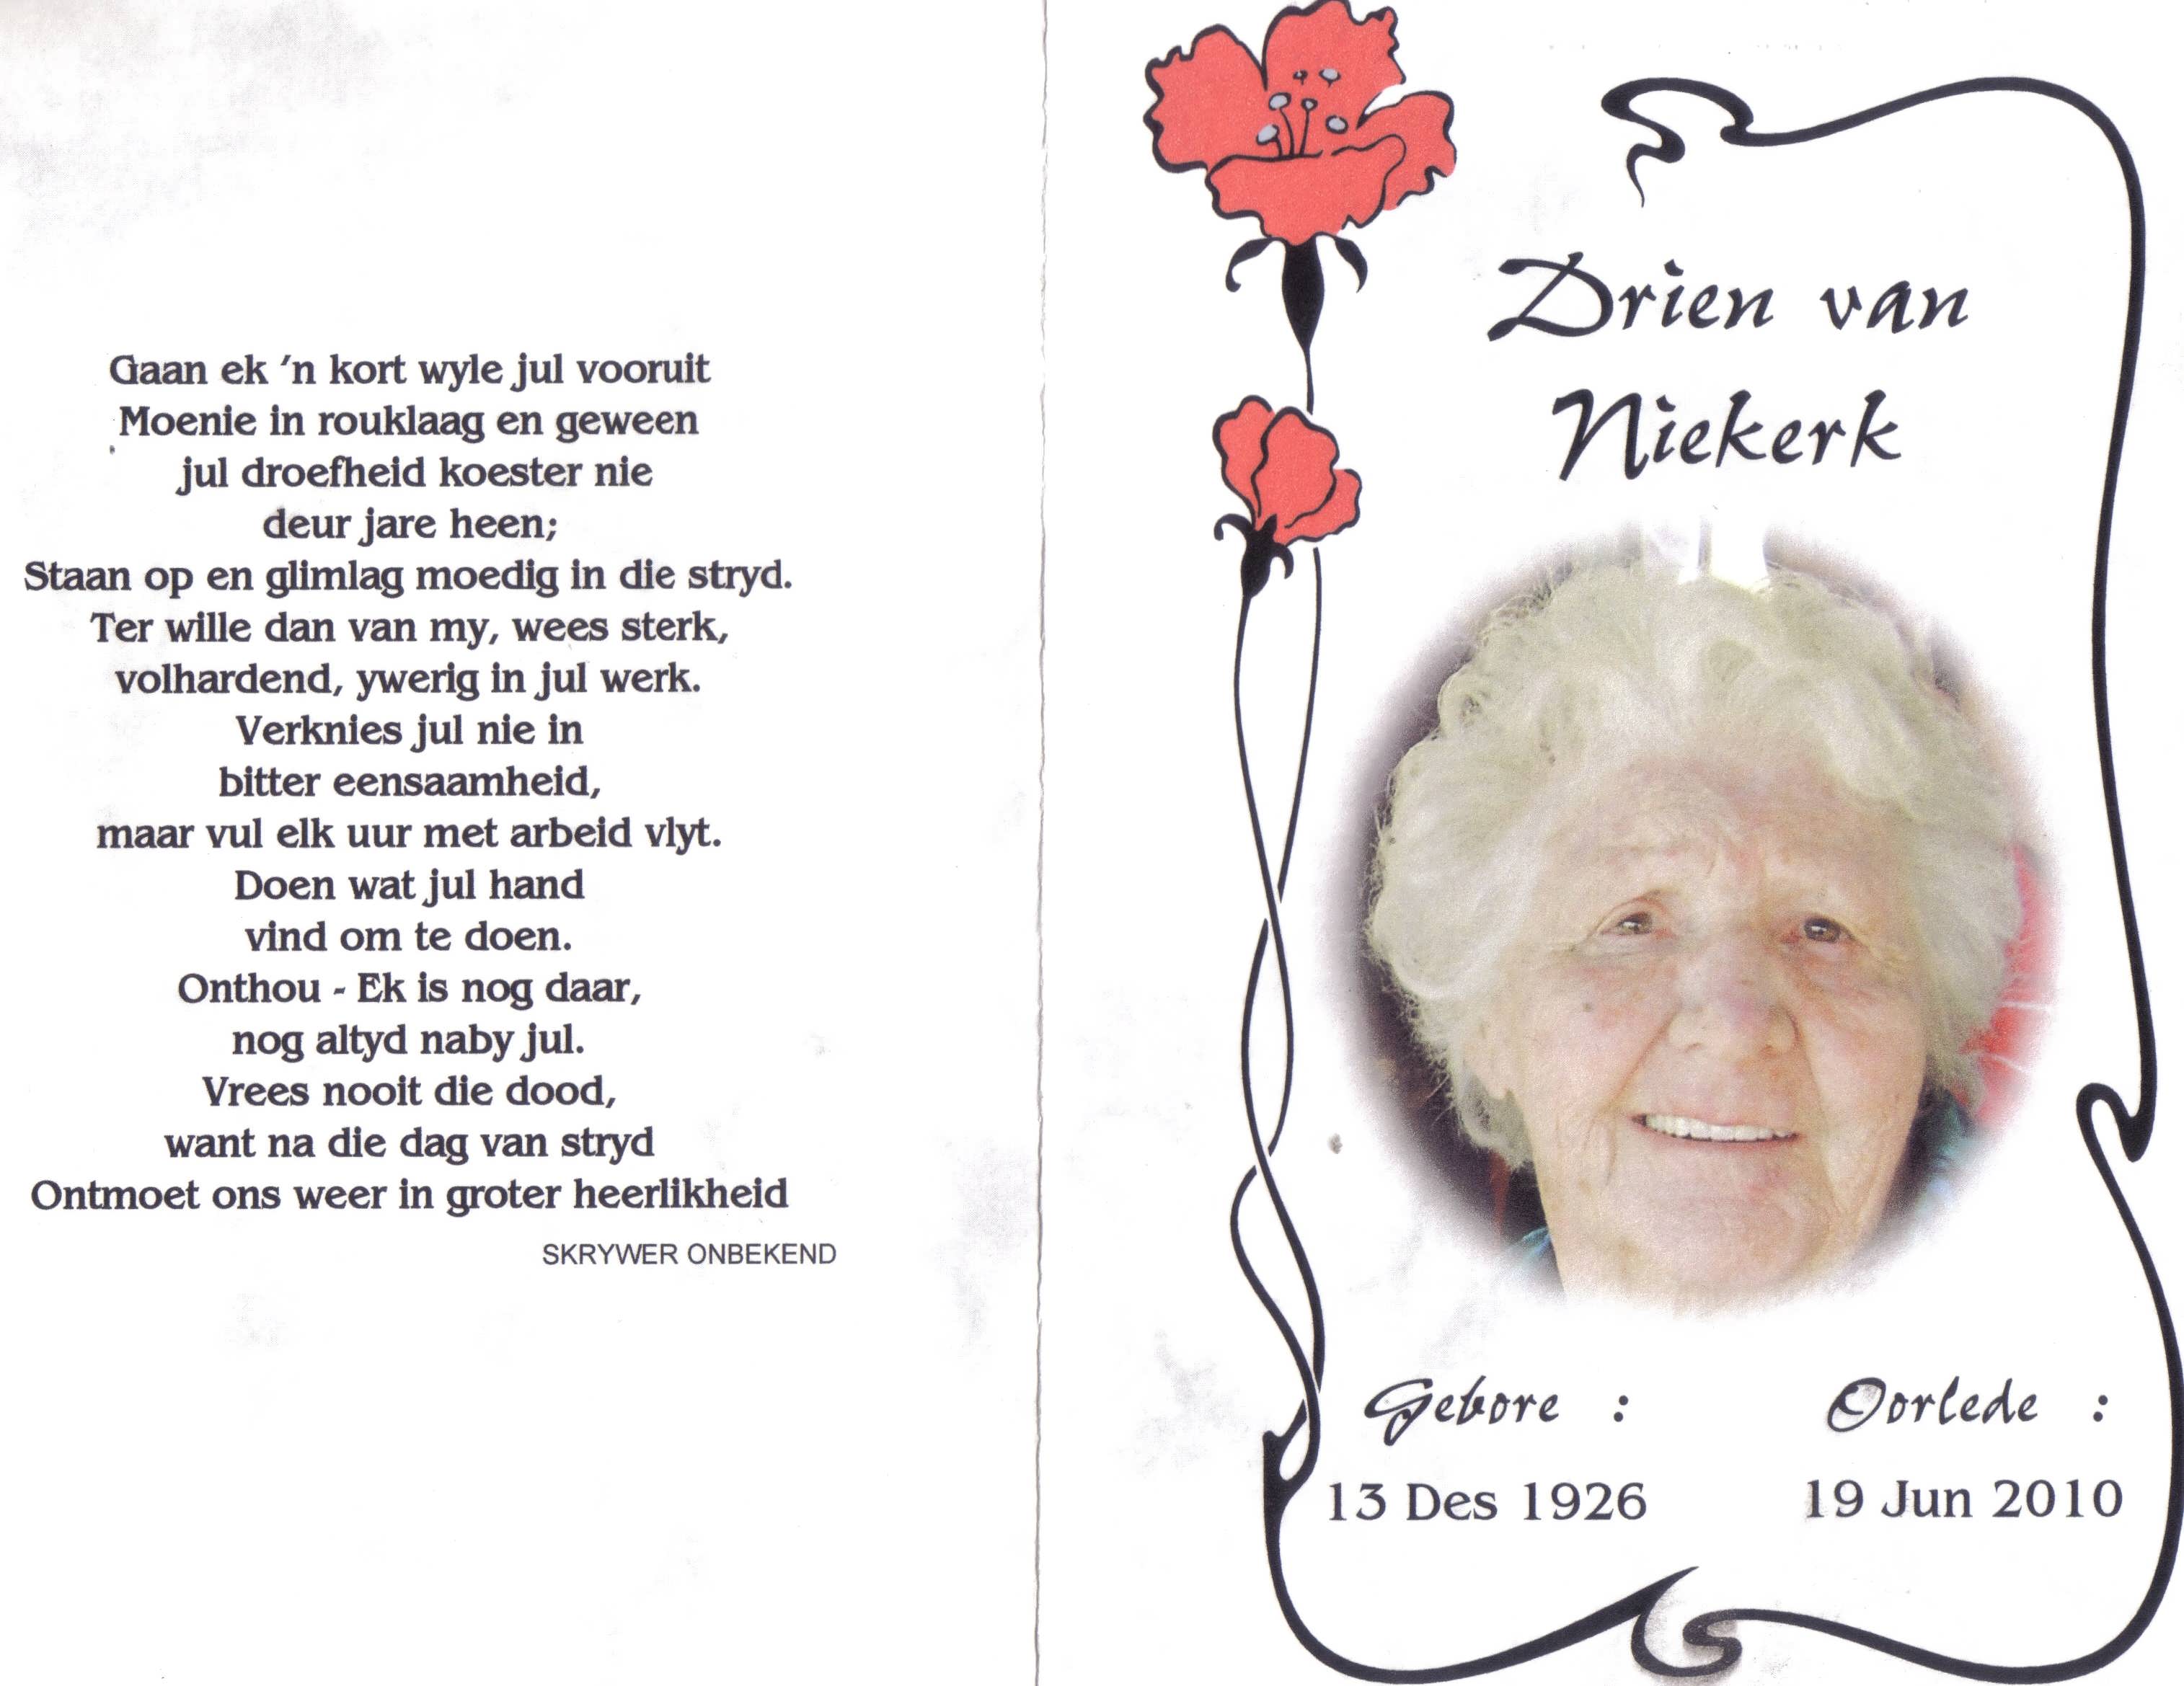 Gaan ek 'n kort wyle jul vooruit
Moenie in rouklaag en geween
jul droefheid koester nie
deur jare heen;
Staan op en glimlag moedig in die stryd.
Ter wille dan van my, wees sterk,
volhardend, ywerig in jul werk.
Verknies jul nie in
bitter eensaamheid,
maar vul elk uur met arbeid vlyt.
Doen wat jul hand
vind om te doen.
Onthou - Ek is nog daar,
nog altyd naby jul.
Vrees nooit die dood,
want na die dag van stryd
Ontmoet ons weer in groter heerlikheid
SKRYWER ONBEKEND
Drien van
Niekerk
Gebore : Oorlede :
13 Des 1926 19 Jun 2010